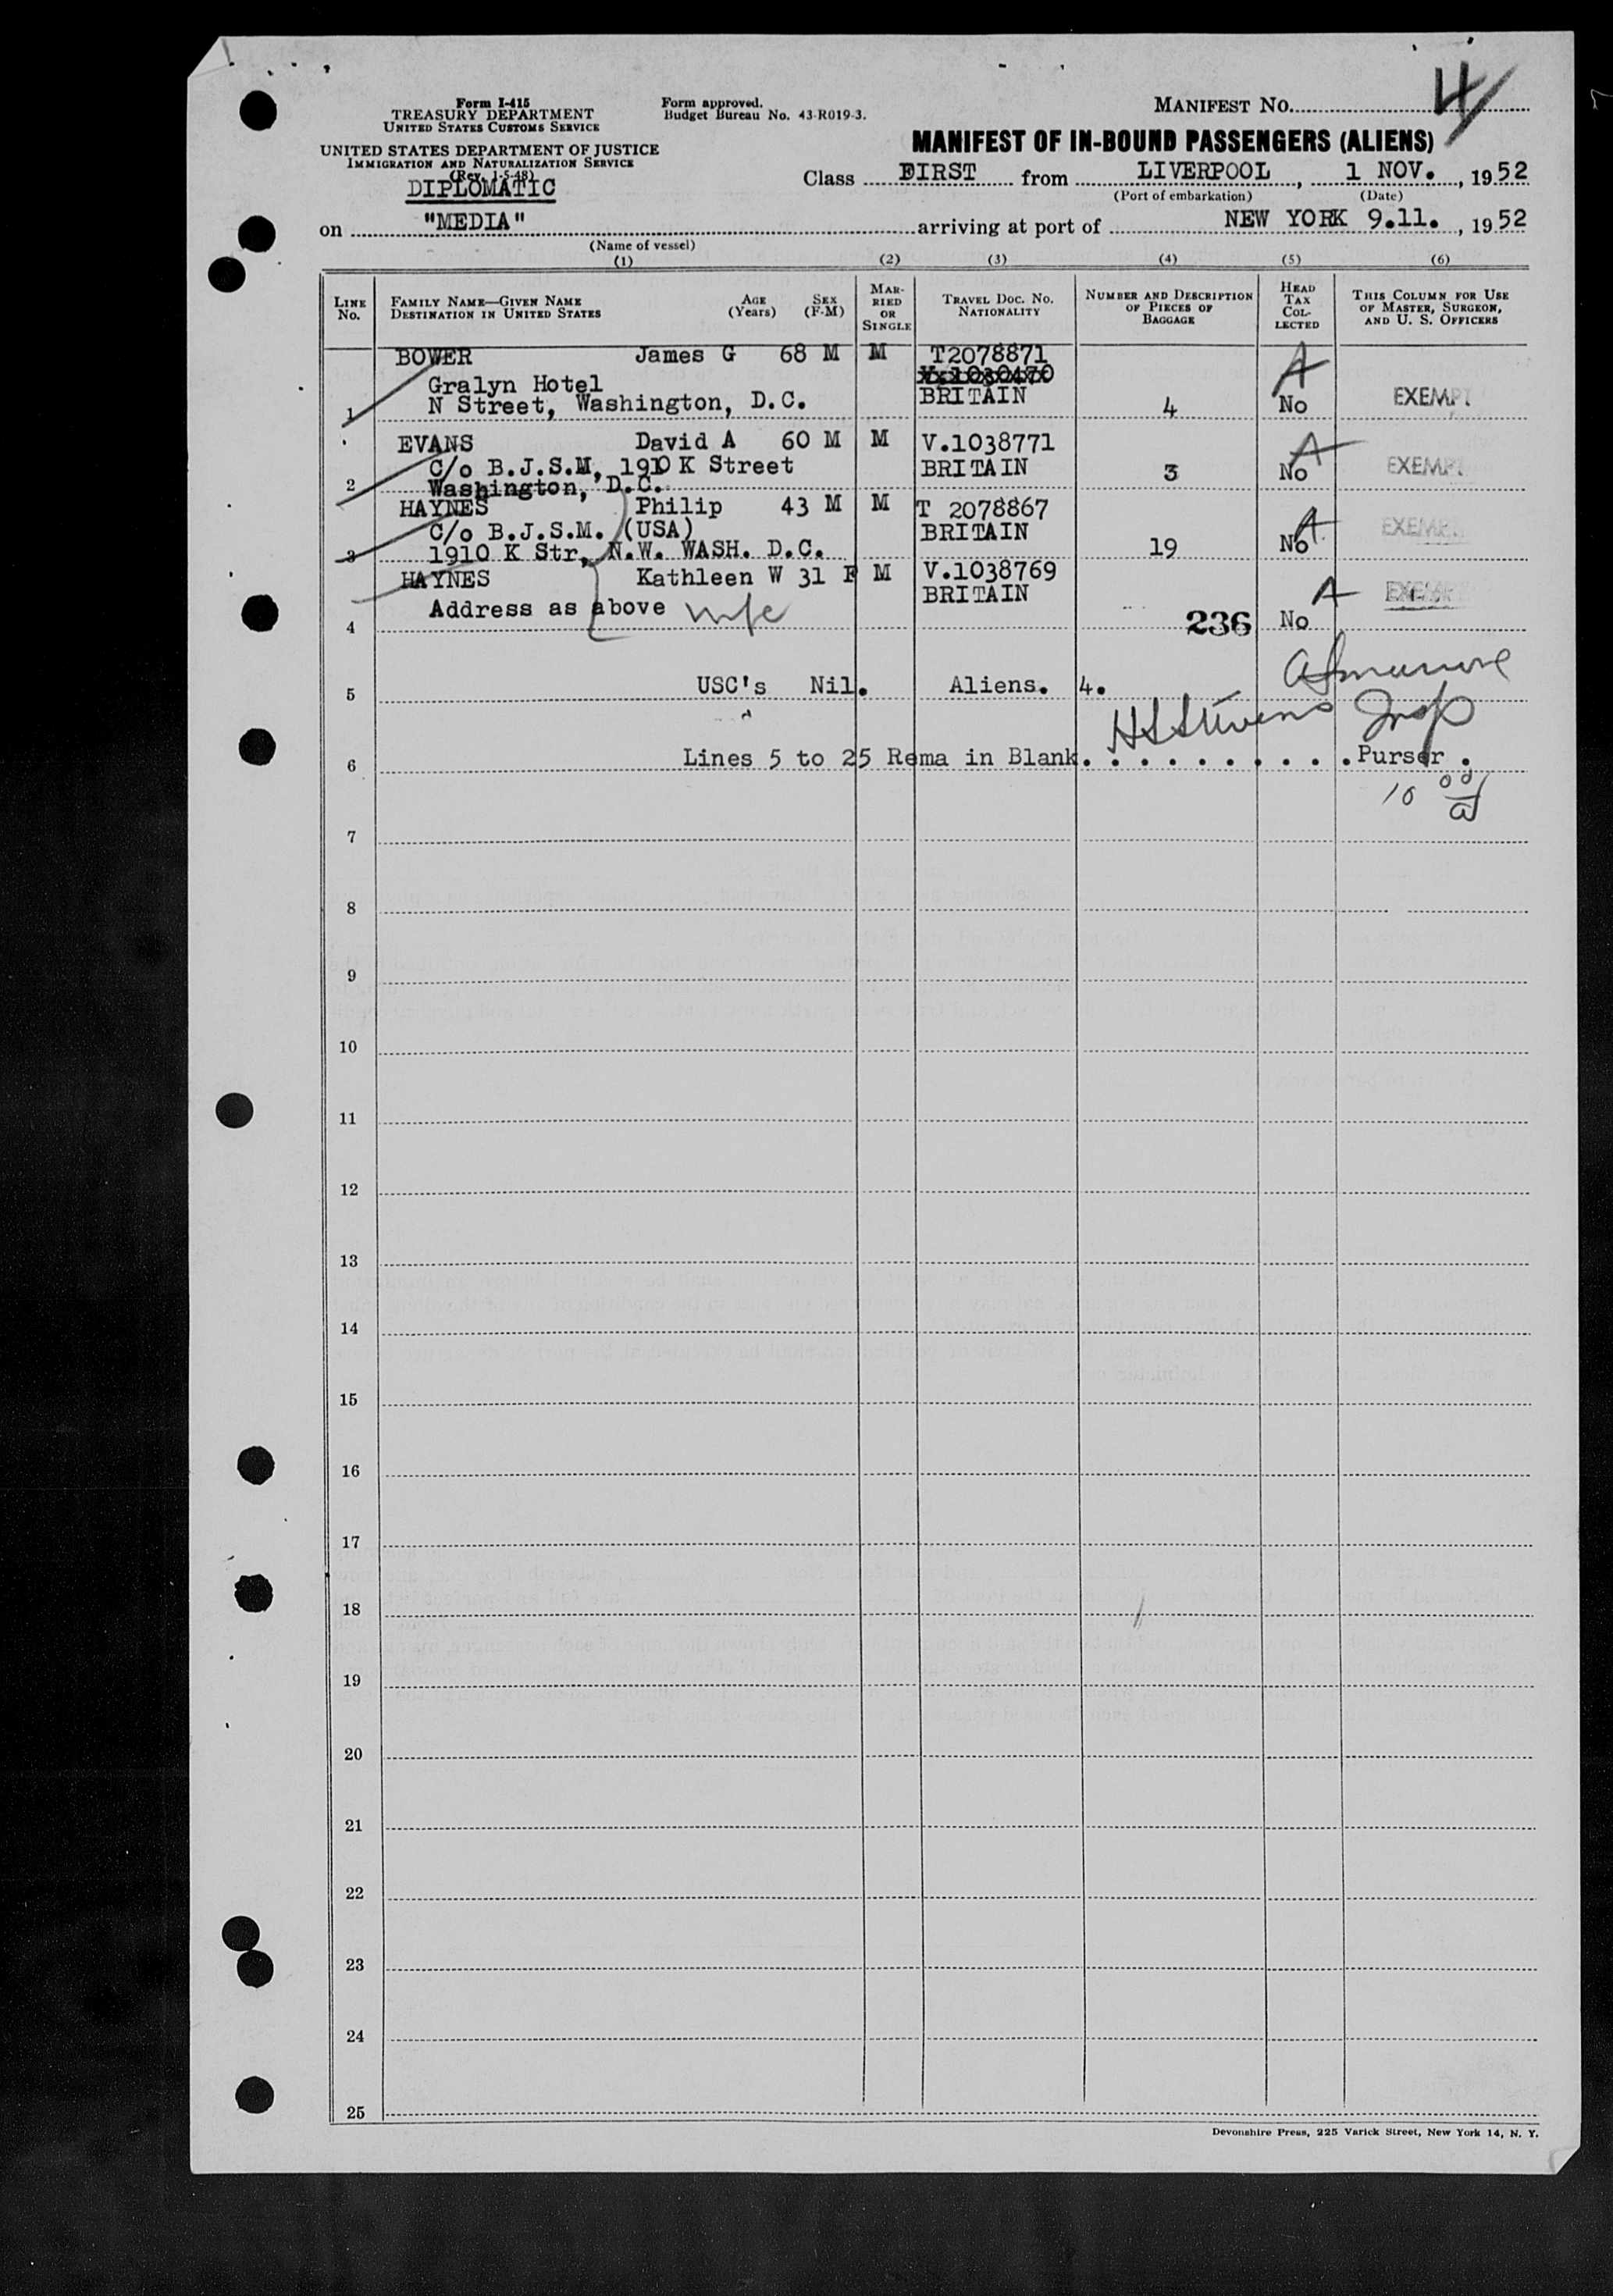 Form I-415
TREASURY DEPARTMENT
UNITED STATES CUSTOMS SERVICE
UNITED STATES DEPARTMENT OF JUSTICE
IMMIGRATION AND NATURALIZATION SERVICE
(Rev. 1-5-48)
DIPLOMATIC
Form approved.
Budget Bureau No. 43-R019-3.
MANIFEST NO. 4
MANIFEST OF IN-BOUND PASSENGERS (ALIENS)
Class FIRST from LIVERPOOL, 1 NOV., 1952
(Port of embarkation) (Date)
on "MEDIA" arriving at port of NEW YORK 9.11., 1952
(Name of vessel)
(1) (2) (3) (4) (5) (6)
LINE No. FAMILY NAME—GIVEN NAME DESTINATION IN UNITED STATES AGE (Years) SEX (F-M) MARRIED OR SINGLE TRAVEL DOC. NO. NATIONALITY NUMBER AND DESCRIPTION OF PIECES OF BAGGAGE HEAD TAX COLLECTED THIS COLUMN FOR USE OF MASTER, SURGEON, AND U. S. OFFICERS
BOWER James G 68 M M T2078871 A
V.1030470
Gralyn Hotel BRITAIN
1 N Street, Washington, D.C. 4 No EXEMPT
EVANS David A 60 M M V.1038771 A
C/o B.J.S.M, 1910 K Street BRITAIN 3 No EXEMPT
2 Washington, D.C.
HAYNES Philip 43 M M T 2078867 A EXEMPT
C/o B.J.S.M. (USA) BRITAIN
3 1910 K Str, N.W. WASH. D.C. 19 No
HAYNES Kathleen W 31 F M V.1038769 A EXEMPT
BRITAIN
Address as above wife
4 236 No
5 USC's Nil. Aliens. 4.
HS Stevens Insp
6 Lines 5 to 25 Rema in Blank. . . . . . . . . . Purser .
10 00/a
7
8
9
10
11
12
13
14
15
16
17
18
19
20
21
22
23
24
25
Devonshire Press, 225 Varick Street, New York 14, N. Y.